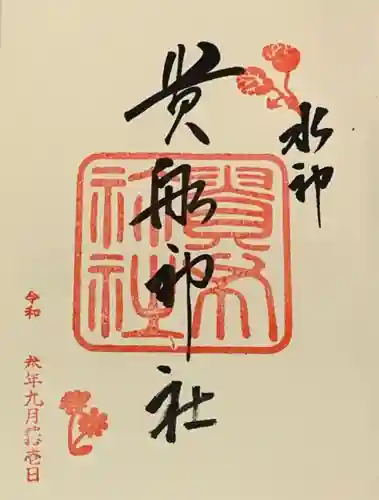 水神
貴船神社
貴船
神社
令和
年九月壱日